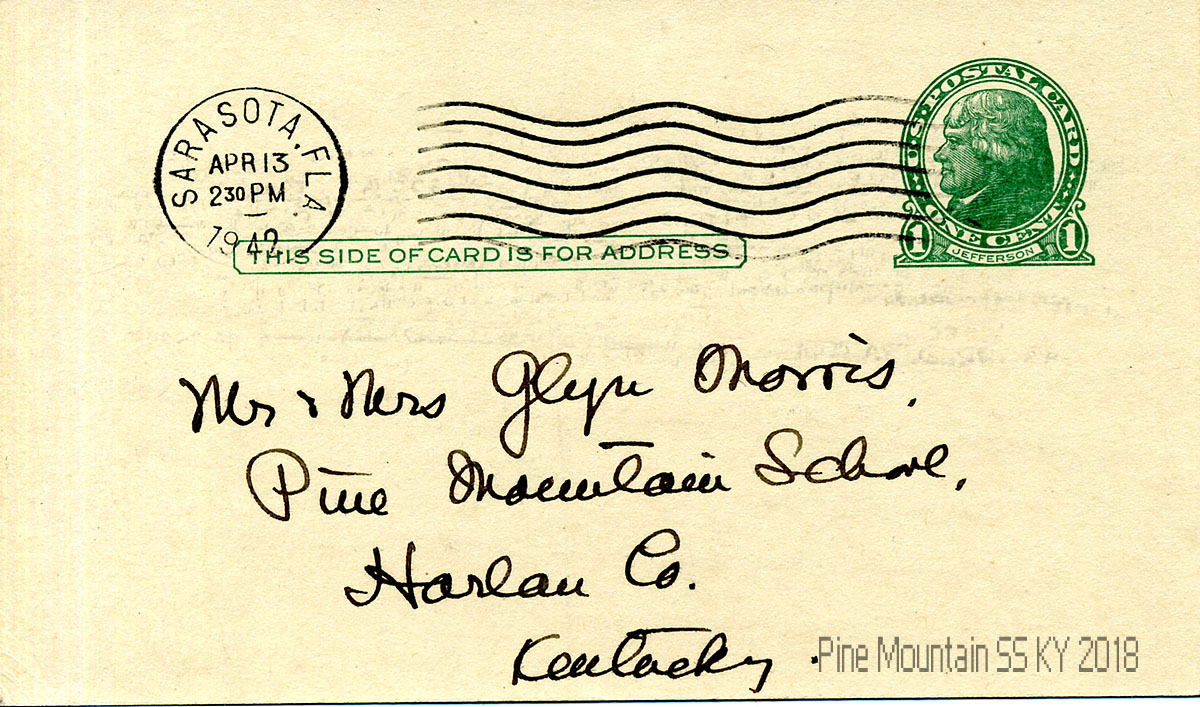 SARASOTA, FLA
APR 13
2 30 PM
1942
U.S. POSTAL CARD
ONE CENT
1 JEFFERSON 1
THIS SIDE OF CARD IS FOR ADDRESS.
Mr & Mrs Glyn Morris,
Pine Mountain School,
Harlan Co.
Kentucky.
Pine Mountain SS KY 2018